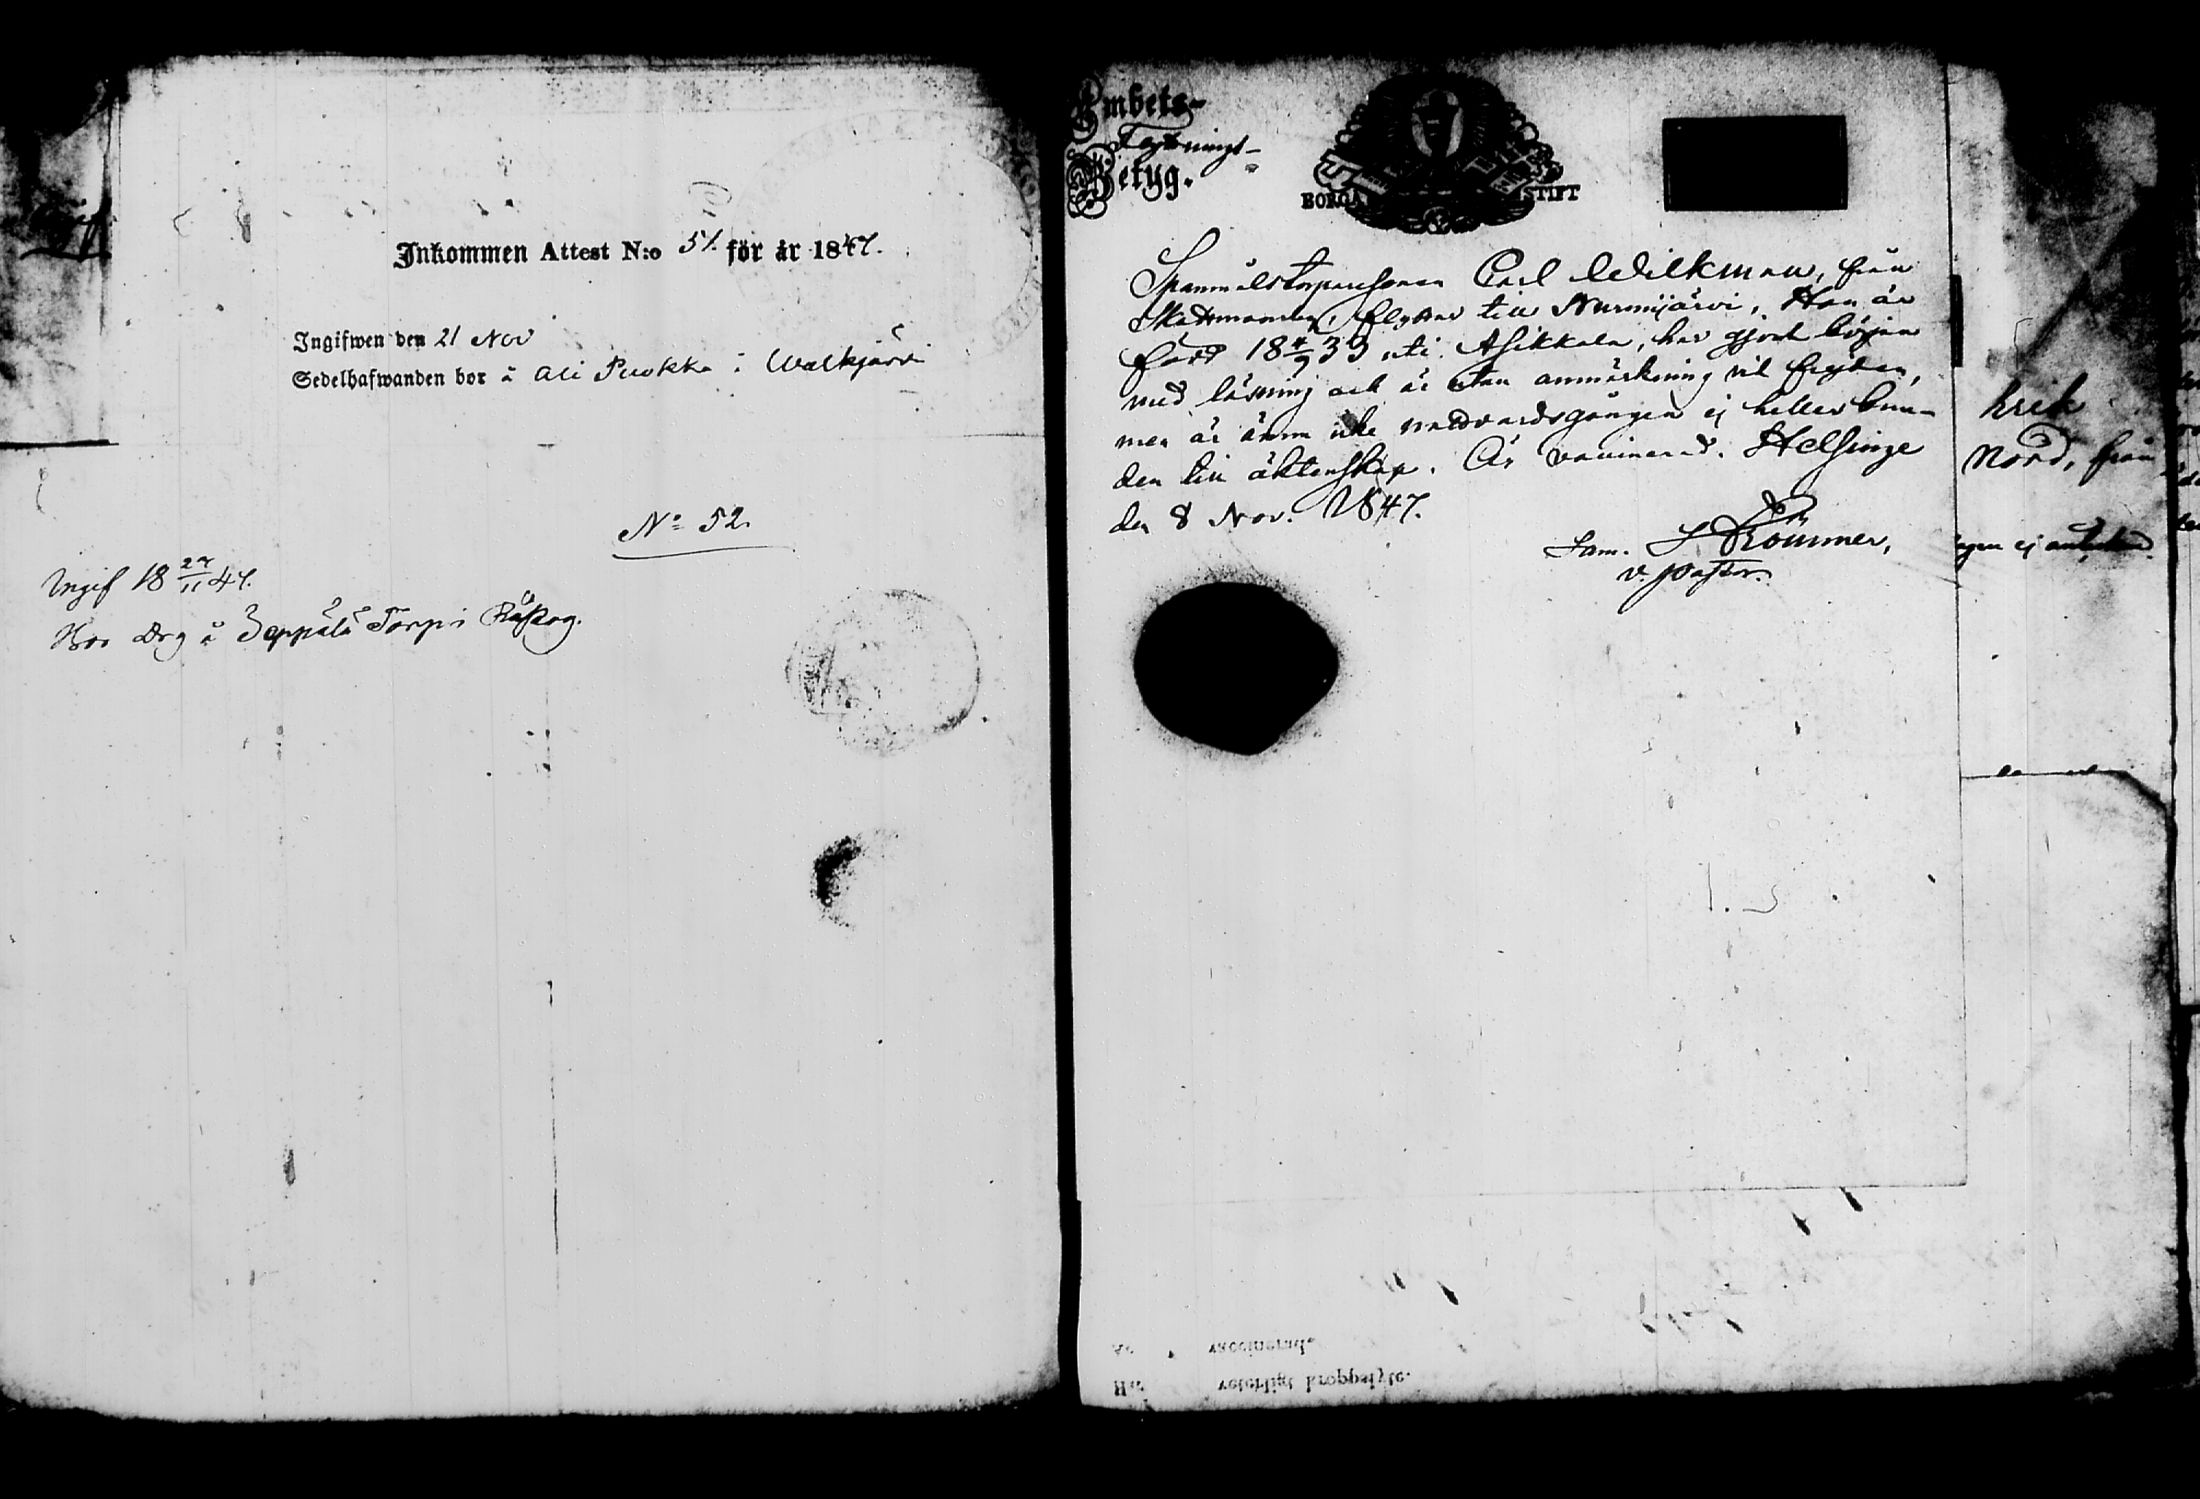 Inkommen Attest N:o 51. för år 1847.
Ingifwen den 21 Nov
Sedelhafwanden bor å Ali Puokka i Walkjärvi
N:o 52.
Ingif 18 27/11 47.
Hos Drg å Seppälä Torp i Råskog.
Embets-
Flyttnings-
Betyg.
BORGÅ STIFT
Spanmålstorparesonen Carl Wilkman, från
Skattmansby, flyttar till Nurmijärvi. Han är
född 18 4/9 33 uti Asikkala, har gjort början
med läsning och är utan anmärkning vid frejden,
men är ännu icke nattvardsgången ej heller bun-
den till äktenskap. Är vaccinerad. Helsinge
den 8 Nov. 1847.
Sam. Römmer,
v. pastor.
hrik
Nord, från
gen ej
vaccinerad.
Har veterligt kroppslyte.